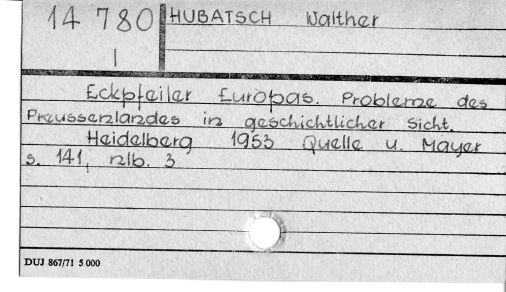 14 780 HUBATSCH Walther
I
Eckpfeiler Europas. Probleme des
Preussenlandes in geschichtlicher Sicht.
Heidelberg 1953 Quelle u. Mayer
s. 141, nlb. 3
DUJ 867/71 5 000